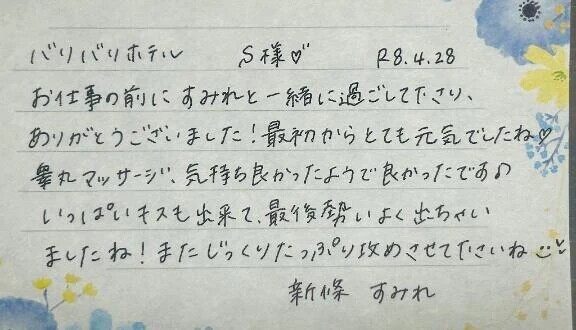 バリバリホテル S様♡ R8.4.28
お仕事の前にすみれと一緒に過ごして下さり、
ありがとうございました!最初からとても元気でしたね♡
睾丸マッサージ、気持ち良かったようで良かったです♪
いっぱいキスも出来て、最後勢いよく出ちゃい
ましたね!またじっくりたっぷり攻めさせて下さいね
新條 すみれ